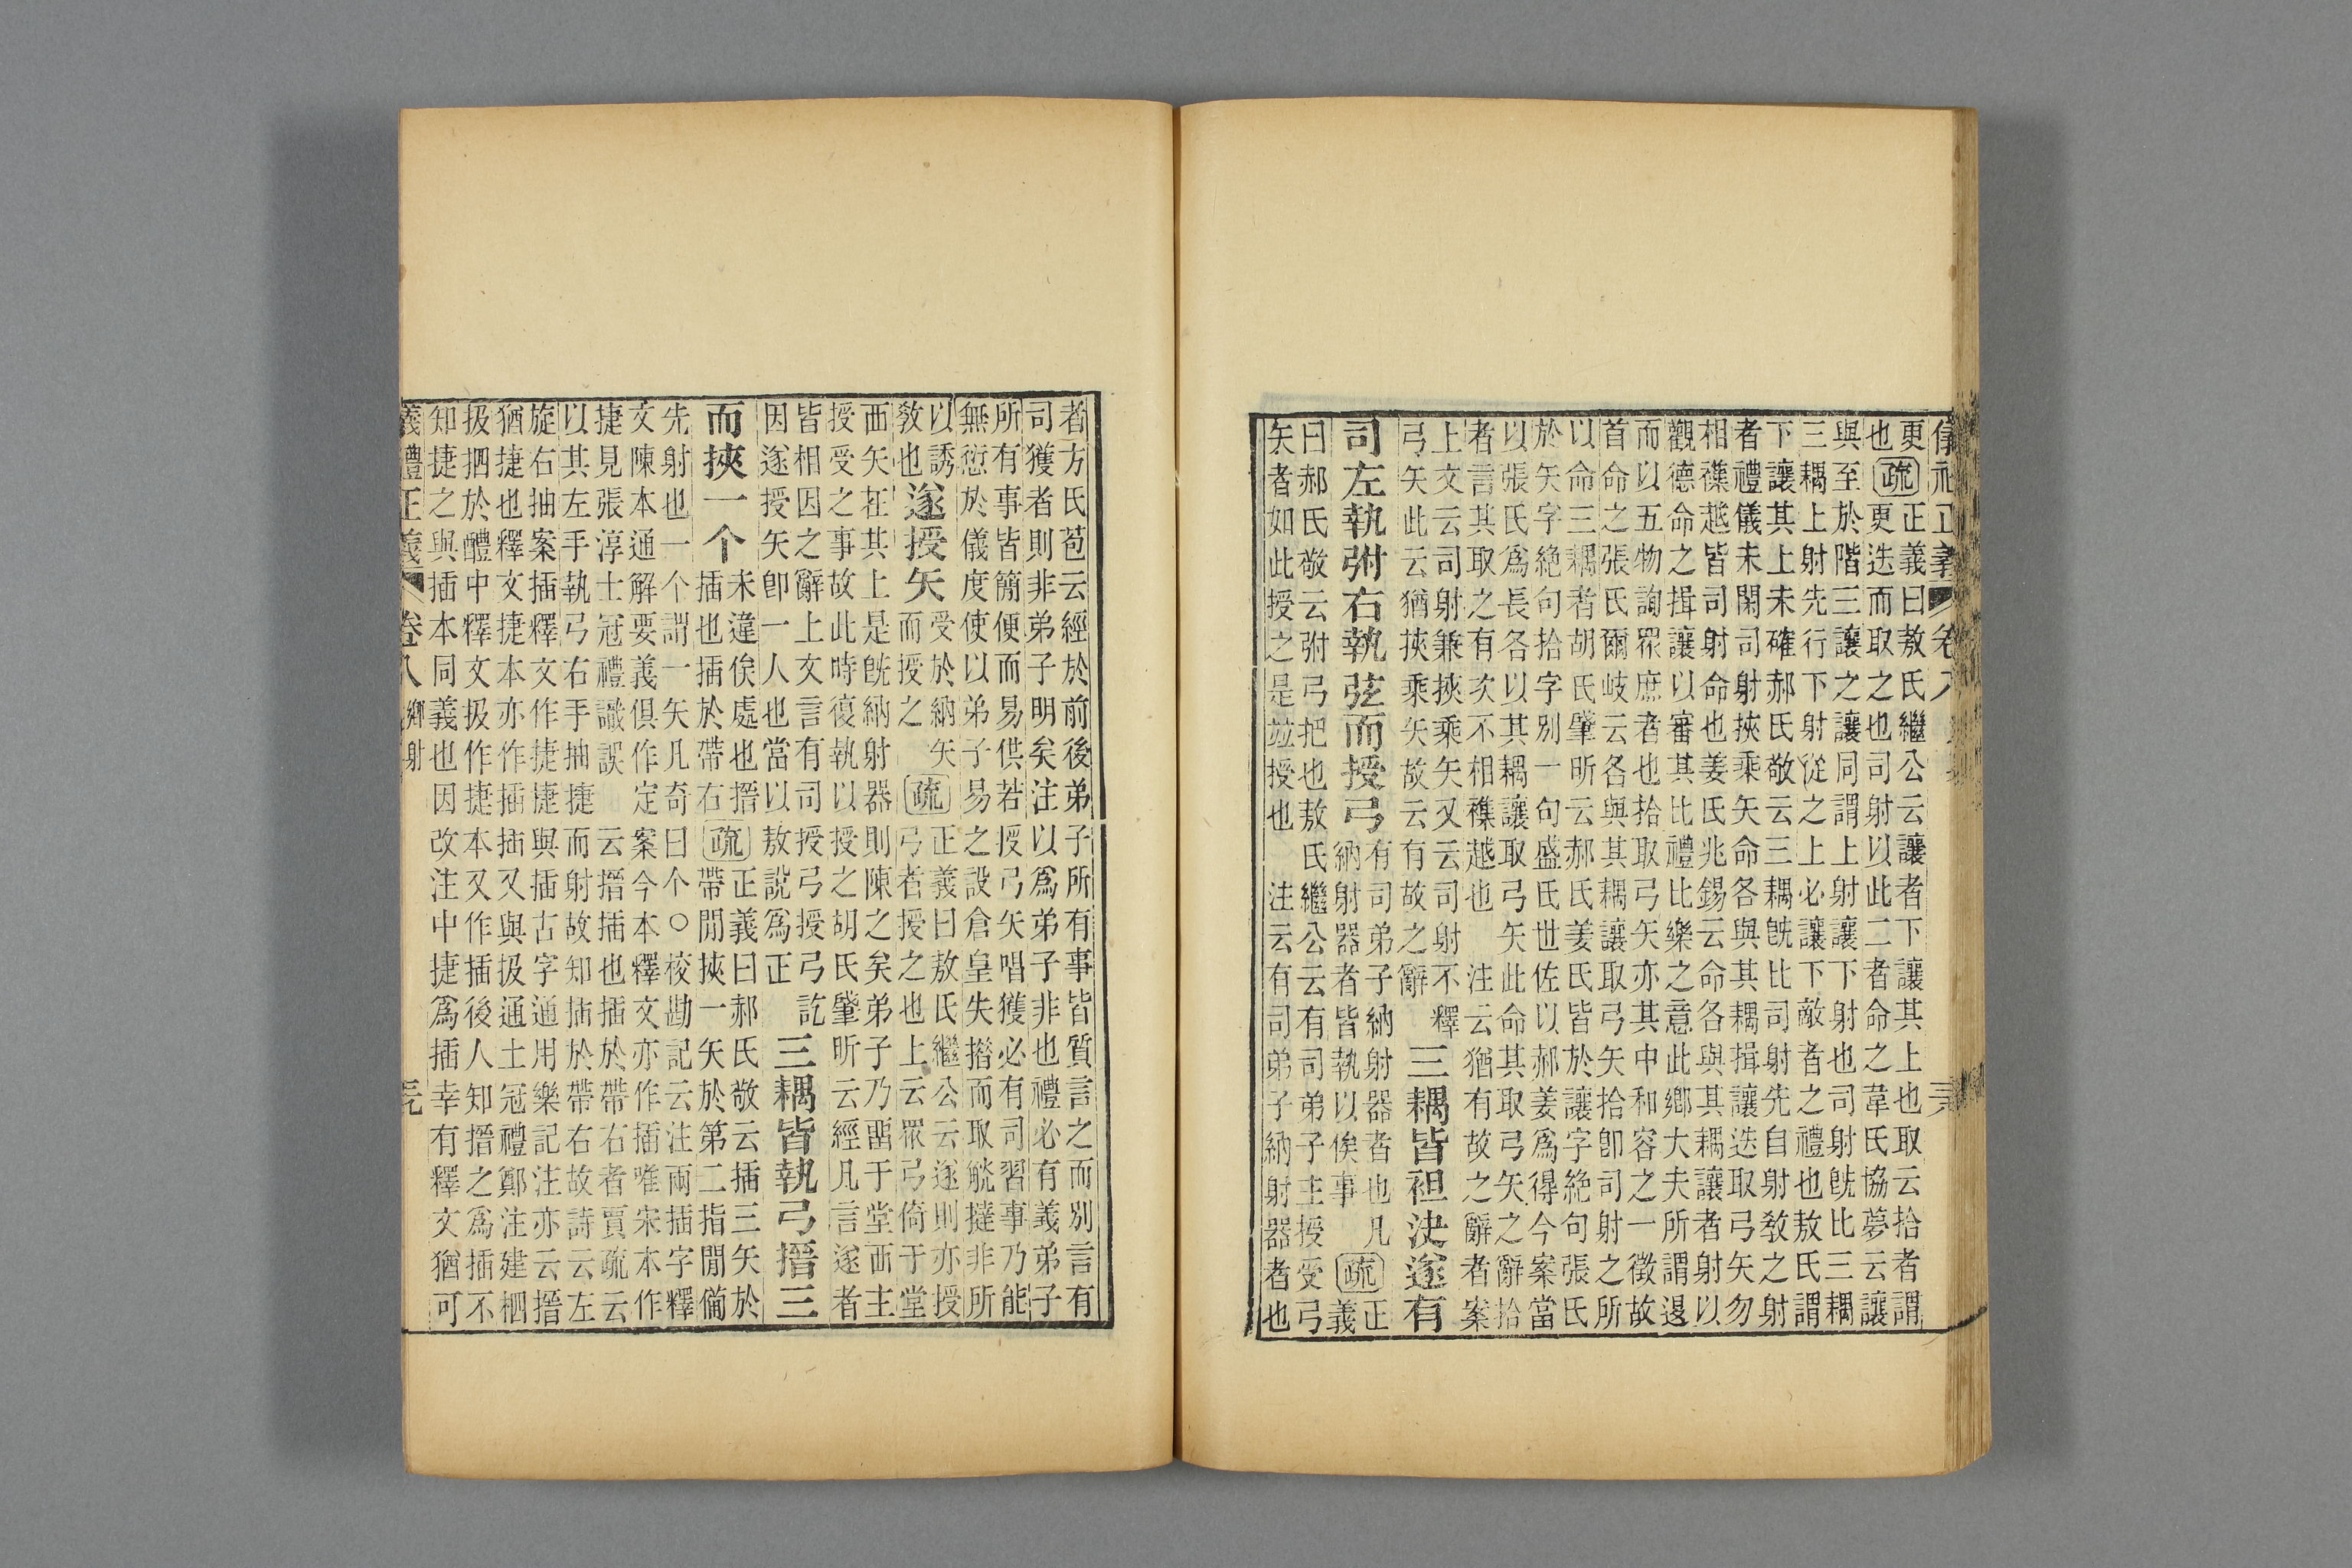 儀禮正義 卷八
更疏正義曰敖氏繼公云讓者下讓其上也取云拾者謂
也更迭而取之也司射以此二者命之韋氏協夢云讓
與至於階三讓之讓同謂上射讓下射也司射既比三耦
三耦上射先行下射從之上必讓下敵者之禮也敖氏謂
下讓其上未確郝氏敬云三耦既比司射先自射教之射
者禮儀未閑司射挾乘矢命各與其耦揖讓迭取弓矢勿
相襍越皆司射命也姜氏兆錫云命各與其耦讓者射以
觀德命之揖讓以審其比禮比樂之意此鄉大夫所謂退
而以五物詢眾庶者也拾取弓矢亦其中和容之一徵故
首命之張氏爾岐云各與其耦讓取弓矢拾卽司射之所
以命三耦者胡氏肇昕云郝氏姜氏皆於讓字絕句張氏
於矢字絕句拾字別一句盛氏世佐以郝姜爲得今案當
以張氏爲長各以其耦讓取弓矢此命其取弓矢之辭拾
者言其取之有次不相襍越也 注云猶有故之辭者案
上文云司射兼挾乘矢又云司射不釋
弓矢此云猶挾乘矢故云有故之辭
三耦皆袒決遂有
司左執弣右執弦而授弓
有司弟子納射器者也凡
納射器者皆執以俟事
疏正
義
曰郝氏敬云弣弓把也敖氏繼公云有司弟子主授受弓
矢者如此授之是並授也 注云有司弟子納射器者也
者方氏苞云經於前後弟子所有事皆質言之而別言有
司獲者則非弟子明矣注以爲弟子非也禮必有義弟子
所有事皆簡便而易供若授弓矢唱獲必有司習事乃能
無愆於儀度使以弟子易之設倉皇失而取觥撻非所
以誘
敎也
遂授矢
受於納矢
而授之
疏正義曰敖氏繼公云遂則亦授
弓者授之也上云眾弓倚于堂
西矢在其上是旣納射器則陳之矣弟子乃畱于堂西主
授受之事故此時復執以授之胡氏肇昕云經凡言遂者
皆相因之辭上文言有司授弓授弓訖
因遂授矢卽一人也當以敖說爲正
三耦皆執弓搢三
而挾一个
未違俟處也搢
插也插於帶右
疏正義曰郝氏敬云插三矢於
帶閒挾一矢於第二指閒偏
先射也一个謂一矢凡奇曰个○校勘記云注兩插字釋
文陳本通解要義俱作定案今本釋文亦作插唯宋本作
捷見張淳士冠禮識誤 云搢插也插於帶右者賈疏云
以其左手執弓右手抽捷而射故知插於帶右故詩云左
旋右抽案插釋文作捷捷與插古字通用樂記注亦云搢
猶捷也釋文捷本亦作插插又與扱通士冠禮鄭注建柶
扱柶於醴中釋文扱作捷本又作插後人知搢之爲插不
知捷之與插本同義也因改注中捷爲插幸有釋文猶可
義禮正義 卷八 鄉射